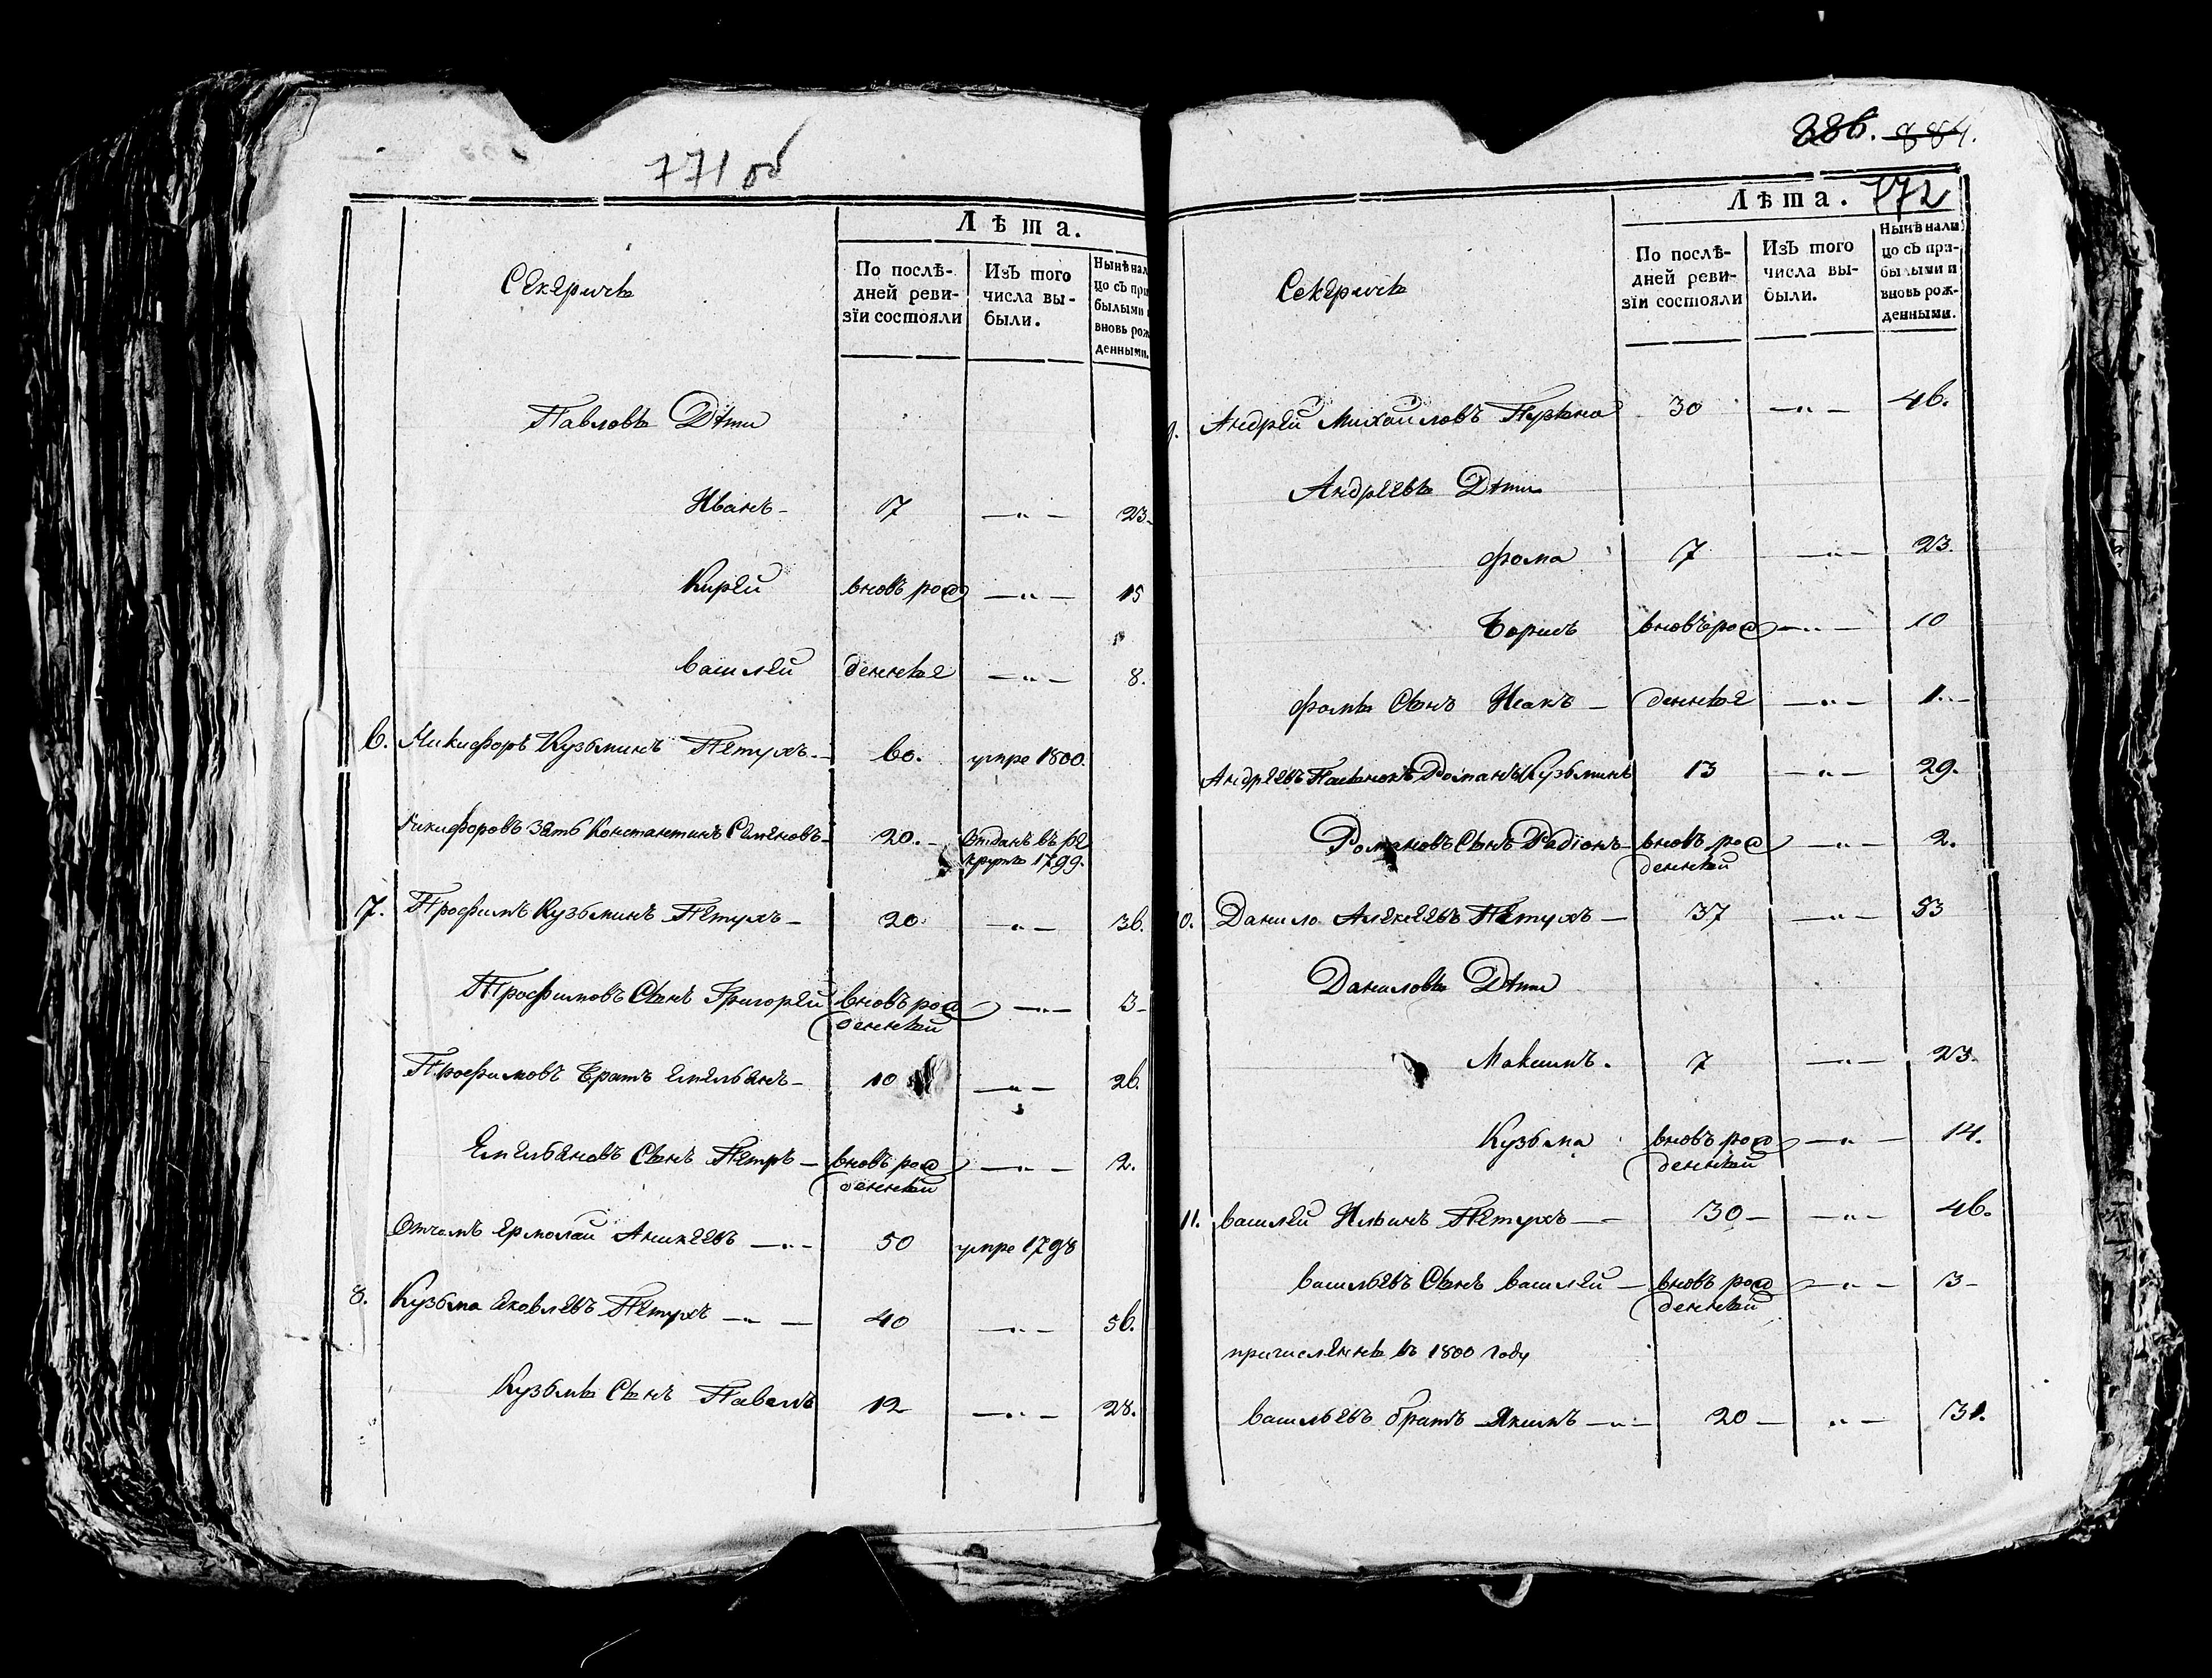 771 об
Лѣта.
Секеричи
По послѣ-
дней реви-
зїи состояли
Изъ того
числа вы-
были.
Нынѣ нал
цо съ при
былыми
вновь рож
денными.
Павловы Дѣти
Иванъ - 7 — „ — 23
Кирей вновь рож — „ — 15
Василей денные — „ — 8.
6. Никифоръ Кузьминъ Петухъ - 60. умре 1800.
Никифоровъ зять Константинъ Семеновъ 20. - Отданъ въ ре
круты 1799.
7. Трофимъ Кузьминъ Петухъ - 20 — „ — 36.
Трофимовъ Сынъ Григорей вновь рож — „ — 3
денный
Трофимовъ Братъ Емельянъ - 10 — „ — 26.
Емельяновъ Сынъ Петръ - вновь рож — „ — 2.
денный
Отчимъ Ермолай Аникеевъ — „ — 50 умре 1798
8. Кузьма Яковлевъ Петухъ — „ — 40 — „ — 56.
Кузьмы Сынъ Павелъ 12 — „ — 28.
886. 884.
Лѣта. 772
Секеричи
По послѣ-
дней реви-
зїи состояли
Изъ того
числа вы-
были.
Нынѣ нали
цо съ при-
былыми и
вновь рож-
денными.
9. Андрей Михайловъ 30 — „ — 46.
Андреевы Дѣти
Фома 7 — „ — 23.
Борисъ вновь рож — „ — 10
Фомы Сынъ Исакъ - денные — „ — 1. -
Андреевъ Пасынокъ Романъ Кузьминъ 13 — „ — 29.
Романовъ Сынъ Радіонъ - вновь рож — „ — 2.
денный
0. Данило Алексеевъ Петухъ — 37 — „ — 53
Даниловы Дѣти
Максимъ. 7 — „ — 23.
Кузьма вновь рож — „ — 14.
денный
11. Василей Ильинъ Петухъ — 30 — — „ — 46.
Васильевъ Сынъ Василей — вновь рож — „ — 3 -
денный
причислены въ 1800 году
Васильевъ братъ Якимъ — „ — 20 — „ — 31.